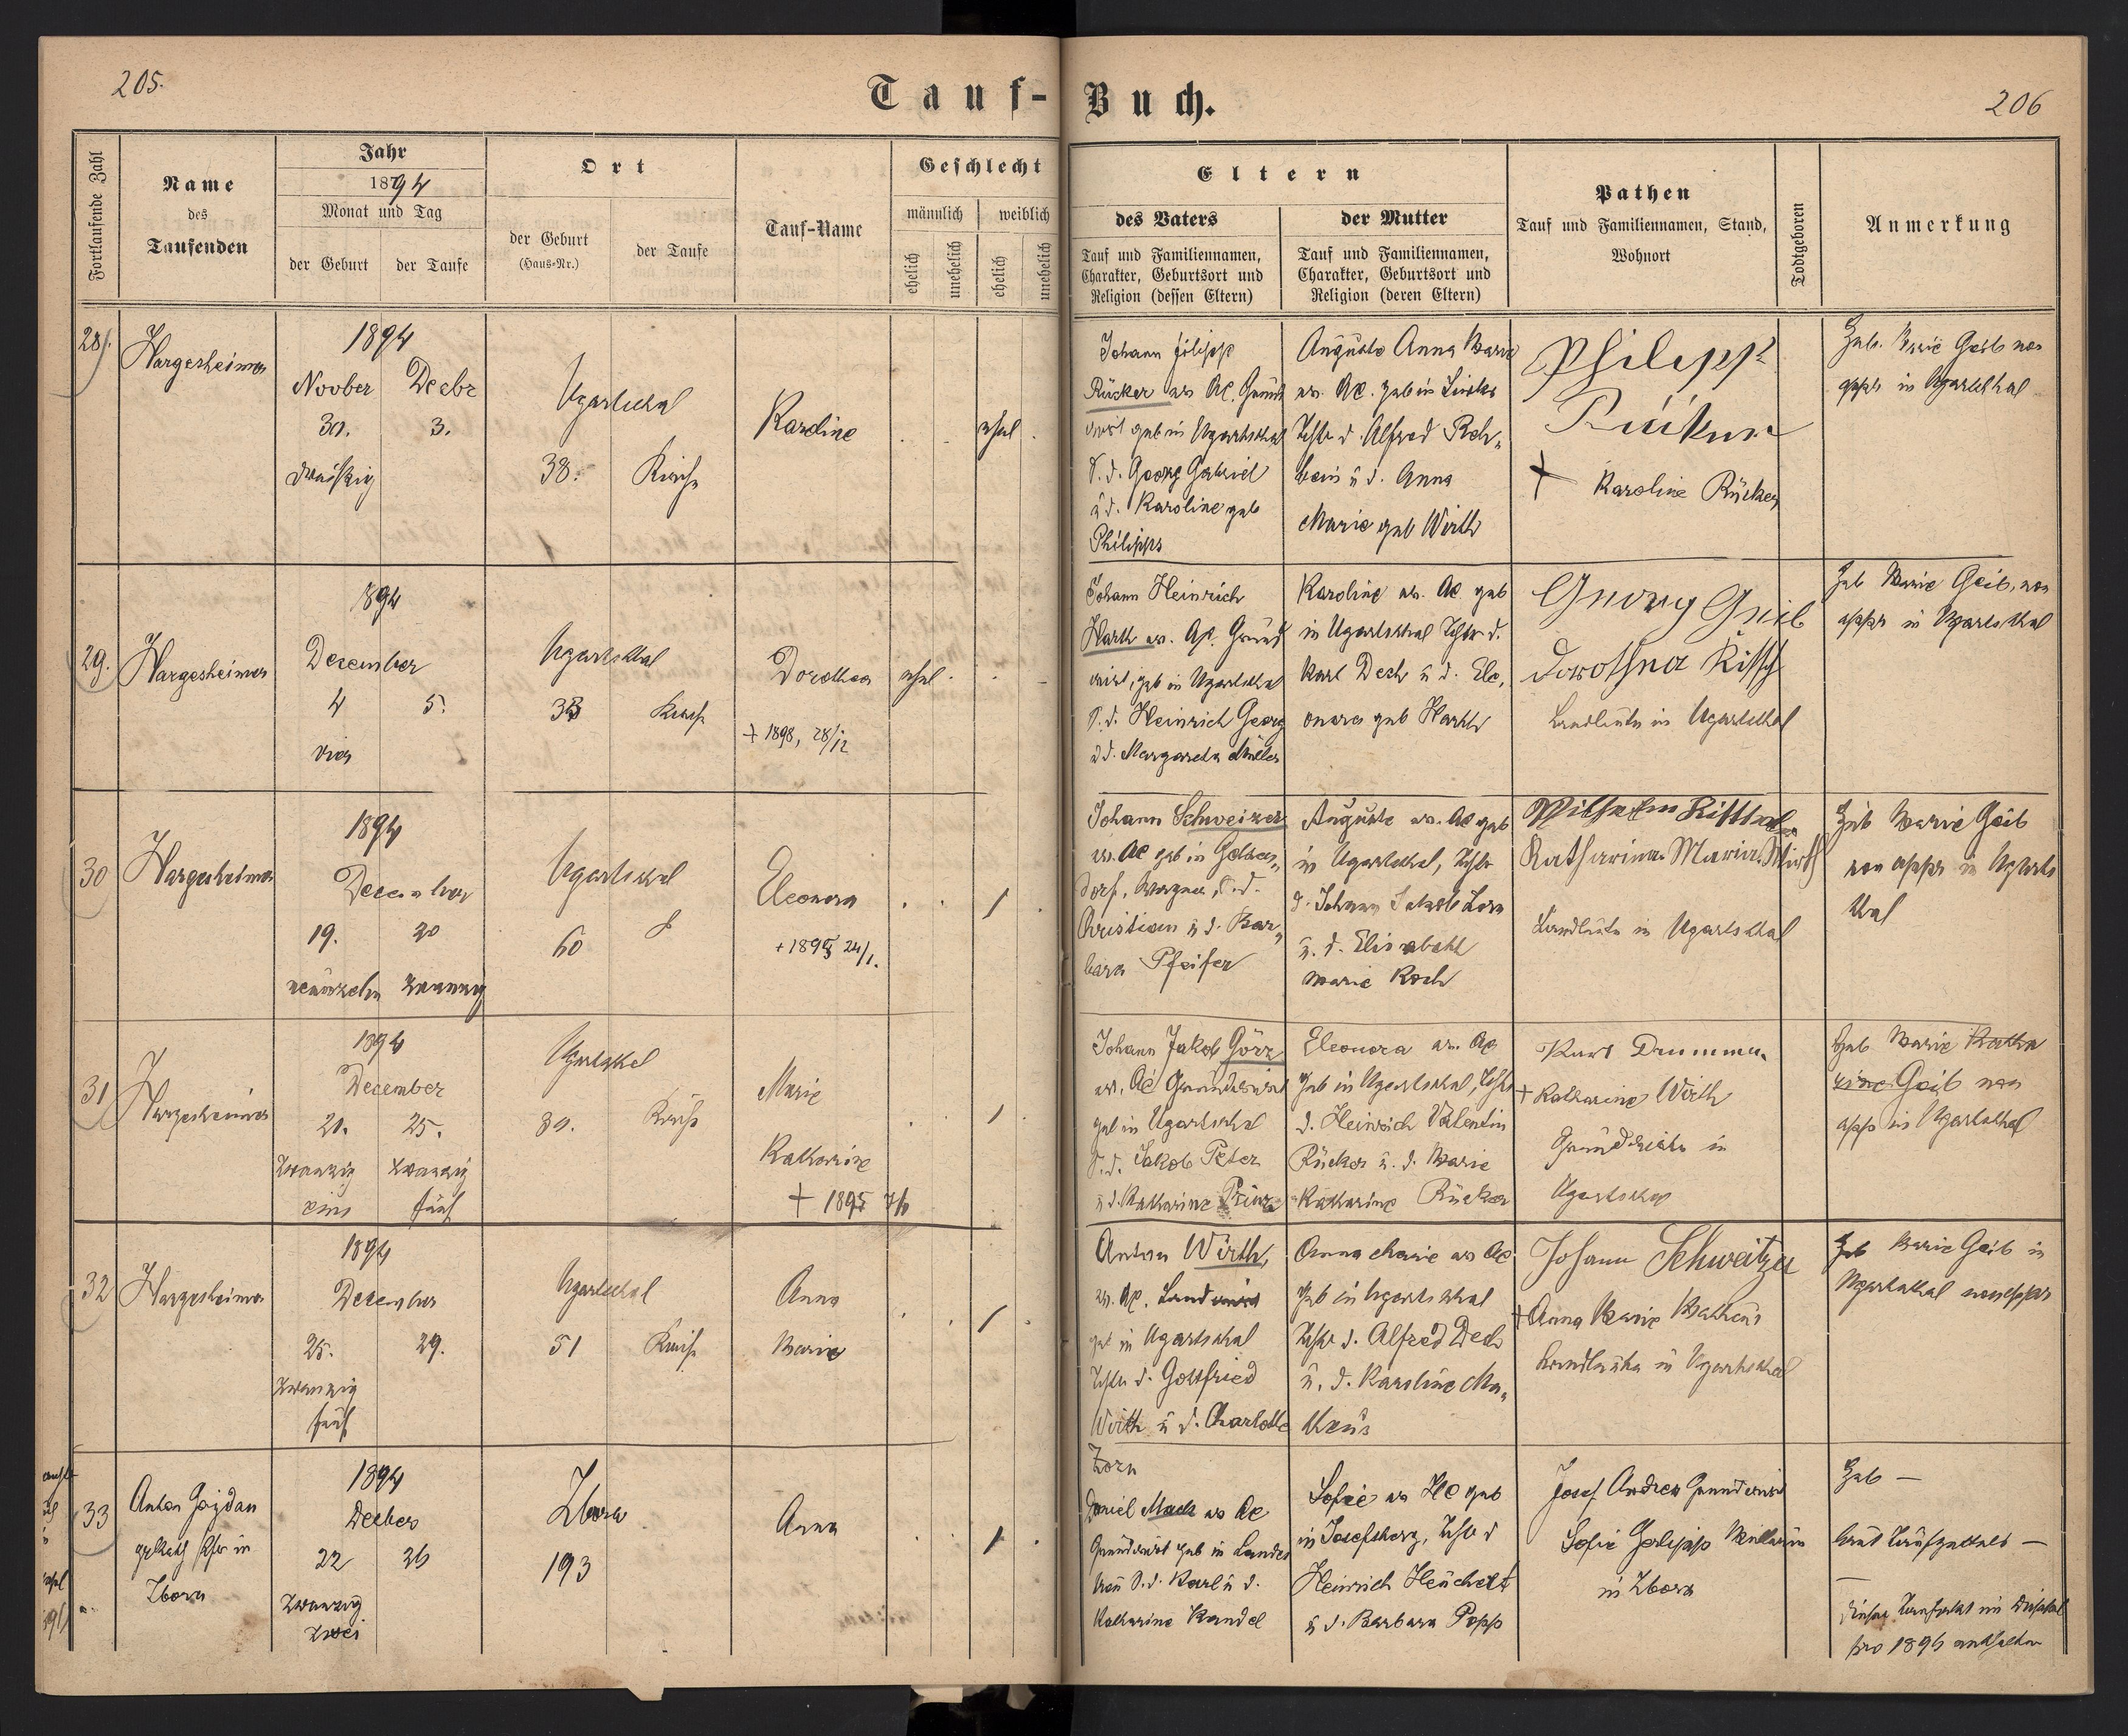 205.
Tauf-Buch.
206
Fortlaufende Zahl
Name
des
Taufenden
Jahr
1894
Monat und Tag
der Geburt
der Taufe
Ort
der Geburt
(Haus-Nr.)
der Taufe
Tauf-Name
Geschlecht
männlich
weiblich
ehelich
unehelich
ehelich
unehelich
Eltern
des Vaters
Tauf und Familiennamen,
Charakter, Geburtsort und
Religion (dessen Eltern)
der Mutter
Tauf und Familiennamen,
Charakter, Geburtsort und
Religion (deren Eltern)
Pathen
Tauf und Familiennamen, Stand,
Wohnort
Todtgeboren
Anmerkung
28
Hargesheimer
1894
Novber Decbr
30. 3.
dreißig
Ugartsthal
38. Kirche
Karoline
ehel
Johann Filipp
Rücker
geb in Ugartsthal
S. d. Georg Gabriel
u d. Karoline geb
Philipps
Auguste Anna Marie
Tchtr d. Alfred Reh-
bein u d. Anna
Marie geb Wirth
Philipp
Rücker
+ Karoline Rücker
Heb. Marie Geib non
appr in Ugartsthal
29.
Hargesheimer
1894
December
4 5.
vier
Ugartsthal
33 Kirche
Dorothea
+ 1898, 28/12
ehel
Johann Heinrich
Harth
geb in Ugartsthal
S. d. Heinrich Georg
u d. Margareta Müller
Karoline ev. AC geb
in Ugartsthal Tchtr d.
Karl Dech u d. Ele-
onora geb Harth
Georg Geib
Dorothea
Landleute in Ugartsthal
Heb Marie Geib, non
appr in Ugartsthal
30
Hargesheimer
1894
December
19. 20
neunzehn zwanzig
Ugartsthal
60
Eleonora
+ 1895 24/1.
Johann Schweizer
ev. AC geb in
dorf, S. d.
Christian u d. Bar-
bara Pfeifer
Auguste ev. AC geb
in Ugartsthal, Tchtr
d. Johann Jakob Zorn
u. d. Elisabeth
Marie Koch
Wilhelm
Katharina Maria Wirth
Landleute in Ugartsthal
Heb Marie Geib
non appr in Ugarts
thal
31
Hargesheimer
1894
December
21. 25.
zwanzig zwanzig
eins fünf
Ugartsthal
Kirche
Marie
Katharine
Johann Jakob Görz
ev. AC Grundwirt
geb in Ugartsthal
S. d. Jakob Peter
u d. Katharine Prinz
Eleonora ev. AC
geb in Ugartsthal, Tchtr
d. Heinrich Valentin
Rücker u. d. Marie
Katharine Rücker
Karl Drumm
+ Katharine Wirth
Grundwirte in
Ugartsthal
Heb Marie Katha
rine Geib non
appr in Ugartsthal
32
Hargesheimer
1894
December
25. 29.
zwanzig
fünf
Ugartsthal
51 Kirche
Anna
Marie
Anton Wirth,
ev. AC. Landwirt
geb in Ugartsthal
Tchtr d. Gottfried
Wirth u d. Charlotte
Zorn
Anna Marie ev AC
geb in Ugartsthal
Tchtr d. Alfred Dech
u. d. Karoline Ma-
theus
Johann Schweitzer
+ Anna Marie Matheus
Landleute in Ugartsthal
Heb Marie Geib in
Ugartsthal non appr
33
Anton Gajdan
Zbora
1894
Decber
22 26
zwanzig
zwei
Zbora
193
Anna
Daniel Mack ev AC
Grundwirt geb in Landes
treu S. d. Karl u d.
Katharine Kandel
Sofie ev HC geb
in Josefsberg, Tchtr d
Heinrich Heuchert
u d. Barbara Popp
Josef Andres Grundwirt
Sofie
in Zbora
Heb —
pro 1896 enthalten